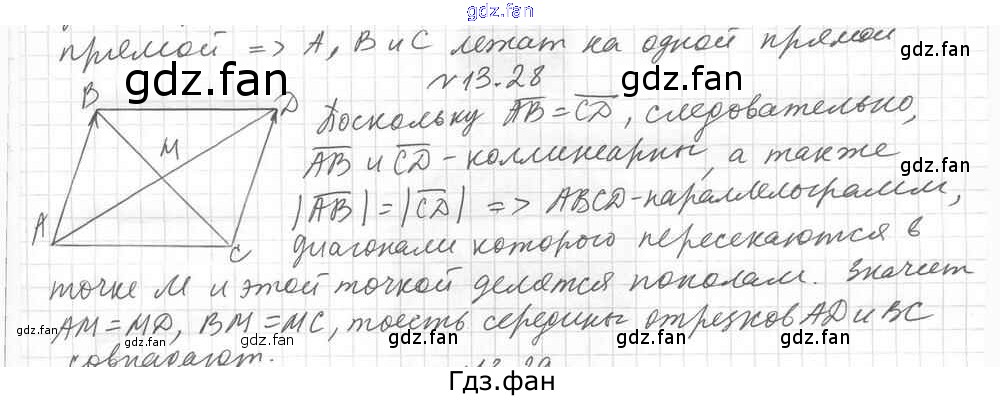 gdz.fan
прямой => A, B и C лежат на одной прямой
gdz.fan
gdz.fan
№13.28
B
D
M
A
C
Поскольку AB = CD, следовательно,
AB и CD - коллинеарны, а также
gdz.fan
|AB| = |CD| => ABCD - параллелограмм,
диагонали которого пересекаются в
точке M и этой точкой делятся пополам. Значит
gdz.fan
gdz.fan
gdz.fan
gdz.fan
AM = MD, BM = MC, тоесть середины отрезков AD и BC
совпадают.
gdz.fan
gdz.fan
gdz.fan
13.29
Гдз.фан